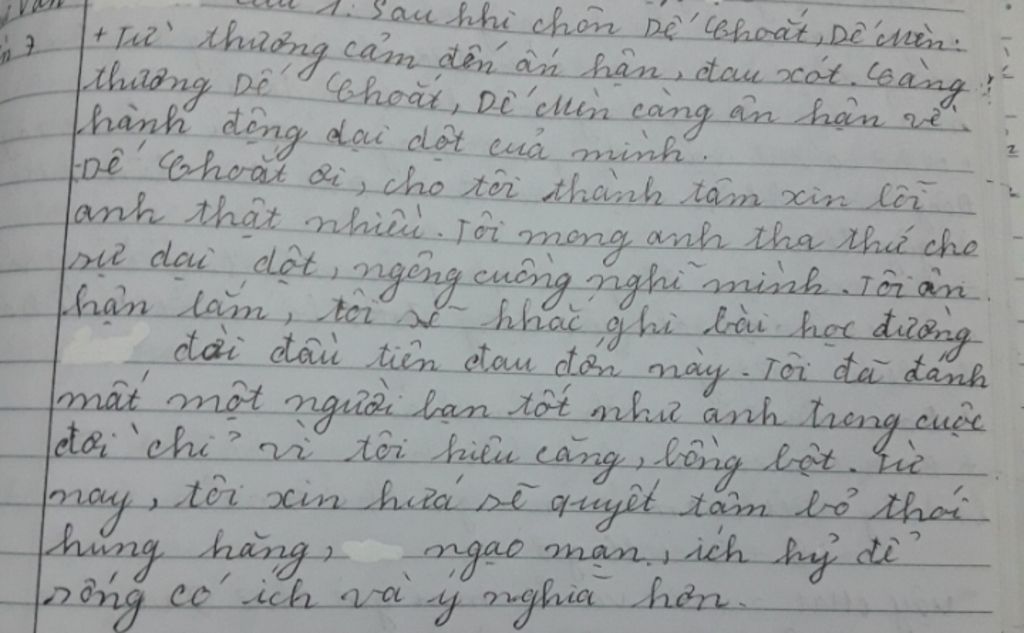 Câu 1: Sau khi chôn Dế Choắt, Dế Mèn:
+ Từ thương cảm đến ân hận, đau xót. Càng
thương Dế Choắt, Dế Mèn càng ân hận về
hành động dại dột của mình.
- Dế Choắt ơi, cho tôi thành tâm xin lỗi
anh thật nhiều. Tôi mong anh tha thứ cho
sự dại dột, ngông cuồng nghĩ mình. Tôi ân
hận lắm, tôi sẽ khắc ghi bài học đường
đời đầu tiên đau đớn này. Tôi đã đánh
mất một người bạn tốt như anh trong cuộc
đời chỉ vì tôi hiêu căng, bồng bột. Từ
nay, tôi xin hứa sẽ quyết tâm bỏ thói
hung hăng, ngạo mạn, ích kỷ để
sống có ích và ý nghĩa hơn.